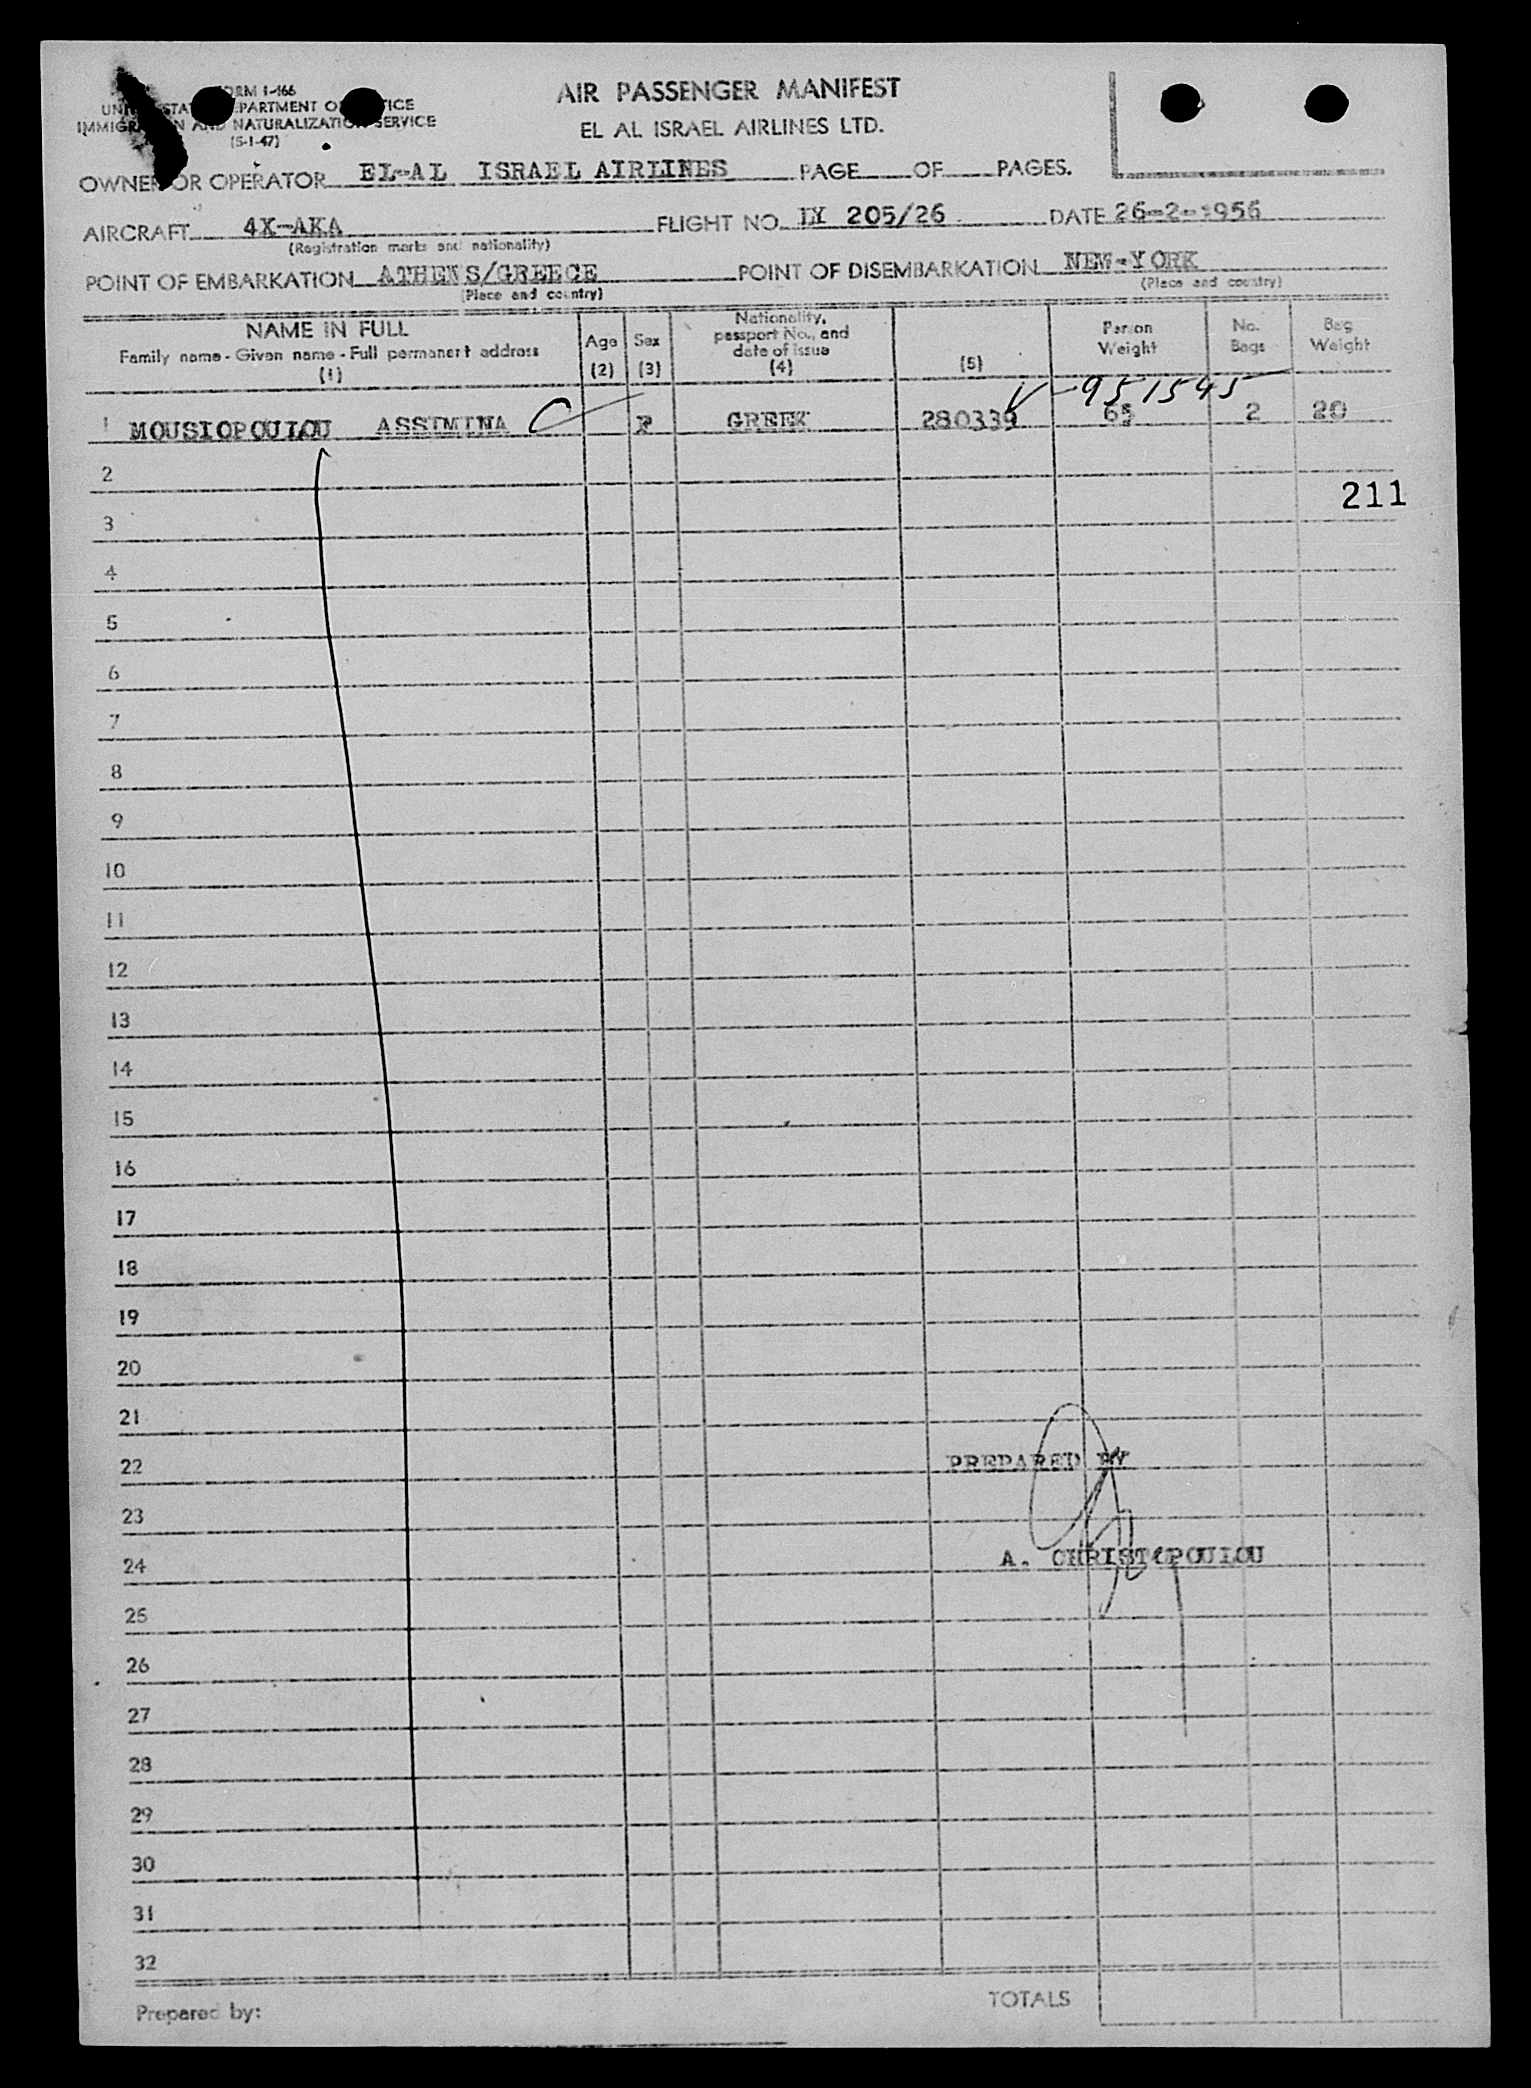 FORM I-466
UNITED STATES DEPARTMENT OF JUSTICE
IMMIGRATION AND NATURALIZATION SERVICE
(5-1-47)
AIR PASSENGER MANIFEST
EL AL ISRAEL AIRLINES LTD.
OWNER OR OPERATOR EL-AL ISRAEL AIRLINES PAGE OF PAGES.
AIRCRAFT 4X-AKA FLIGHT NO. LY 205/26 DATE 26-2-1956
(Registration marks and nationality)
POINT OF EMBARKATION ATHENS/GREECE POINT OF DISEMBARKATION NEW-YORK
(Place and country) (Place and country)
NAME IN FULL
Family name - Given name - Full permanent address
(1)
Age
(2)
Sex
(3)
Nationality,
passport No., and
date of issue
(4)
(5)
Person
Weight
No.
Bags
Bag
Weight
V-951545
1 MOUSIOPOULOU ASSIMINA C F GREEK 280339 65 2 20
2
211
3
4
5
6
7
8
9
10
11
12
13
14
15
16
17
18
19
20
21
22 PREPARED BY
23
24 A. CHRISTOPOULOU
25
26
27
28
29
30
31
32
Prepared by: TOTALS